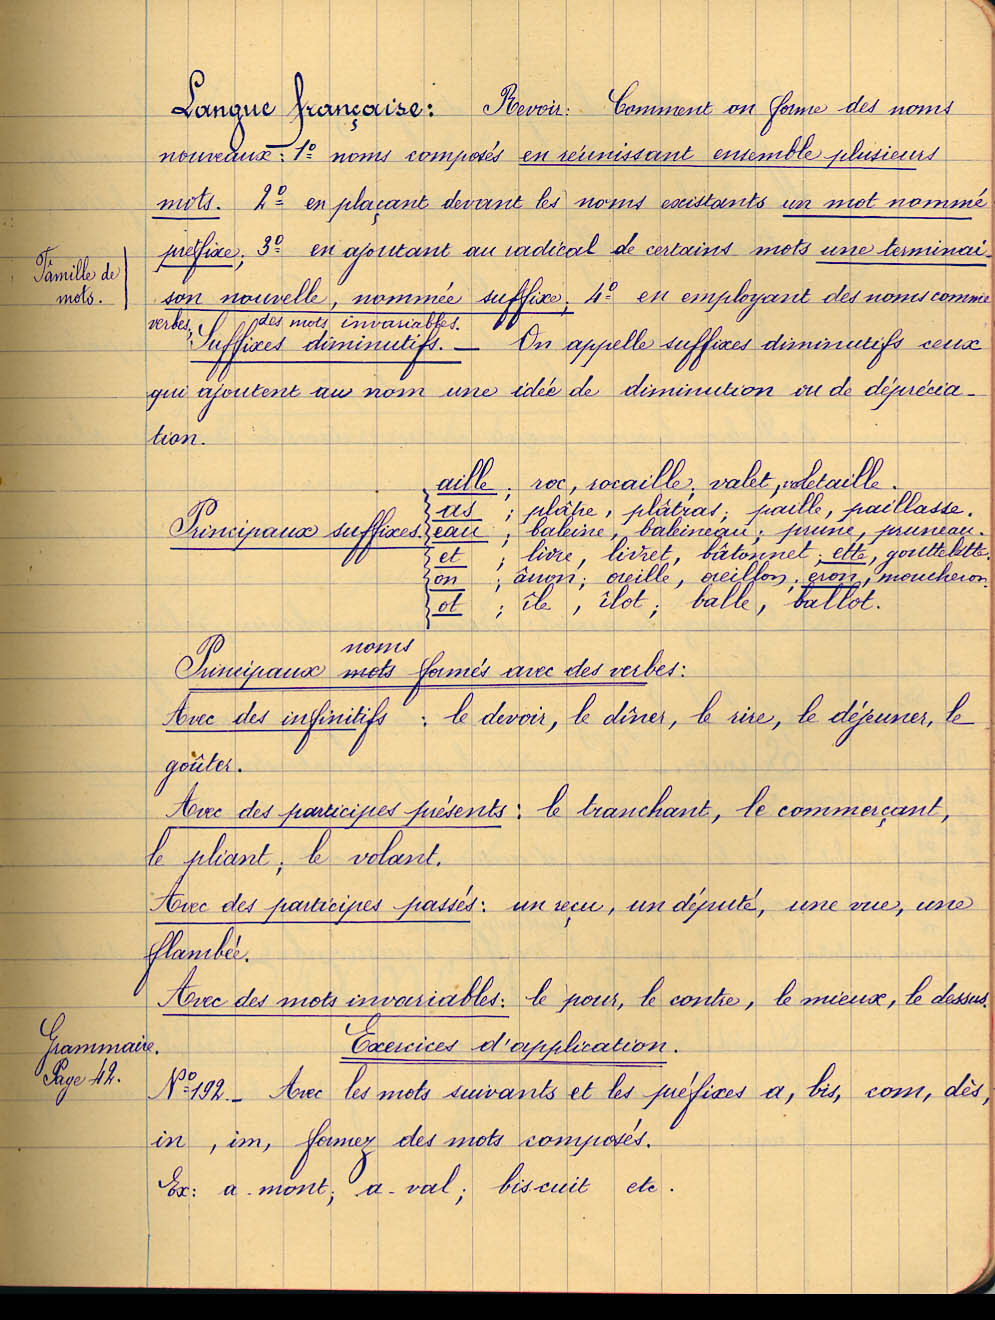 Langue française : Revoir : Comment on forme des noms
nouveaux : 1º noms composés en réunissant ensemble plusieurs
mots. 2º en plaçant devant les noms existants un mot nommé
préfixe ; 3º en ajoutant au radical de certains mots une terminai-
Famille de
mots.
son nouvelle, nommée suffixe ; 4º en employant des noms comme
verbes, des mots invariables.
Suffixes diminutifs. — On appelle suffixes diminutifs ceux
qui ajoutent au nom une idée de diminution ou de déprécia-
tion.
Principaux suffixes.
aille ; roc, rocaille ; valet, valetaille.
as ; plâtre, plâtras ; paille, paillasse.
eau ; baleine, baleineau ; prune, pruneau.
et ; livre, livret, bâtonnet ; ette, gouttelette.
on ; ânon ; oreille, oreillon ; eron, moucheron.
ot ; île, îlot ; balle, ballot.
noms
Principaux mots formés avec des verbes :
Avec des infinitifs : le devoir, le dîner, le rire, le déjeuner, le
goûter.
Avec des participes présents : le tranchant, le commerçant,
le pliant ; le volant.
Avec des participes passés : un reçu, un député, une vue, une
flambée.
Avec des mots invariables : le pour, le contre, le mieux, le dessus.
Grammaire.
Page 42.
Exercices d'application.
Nº 192. — Avec les mots suivants et les préfixes a, bis, com, dès,
in, im, formez des mots composés.
Ex : a-mont ; a-val ; bis-cuit etc.